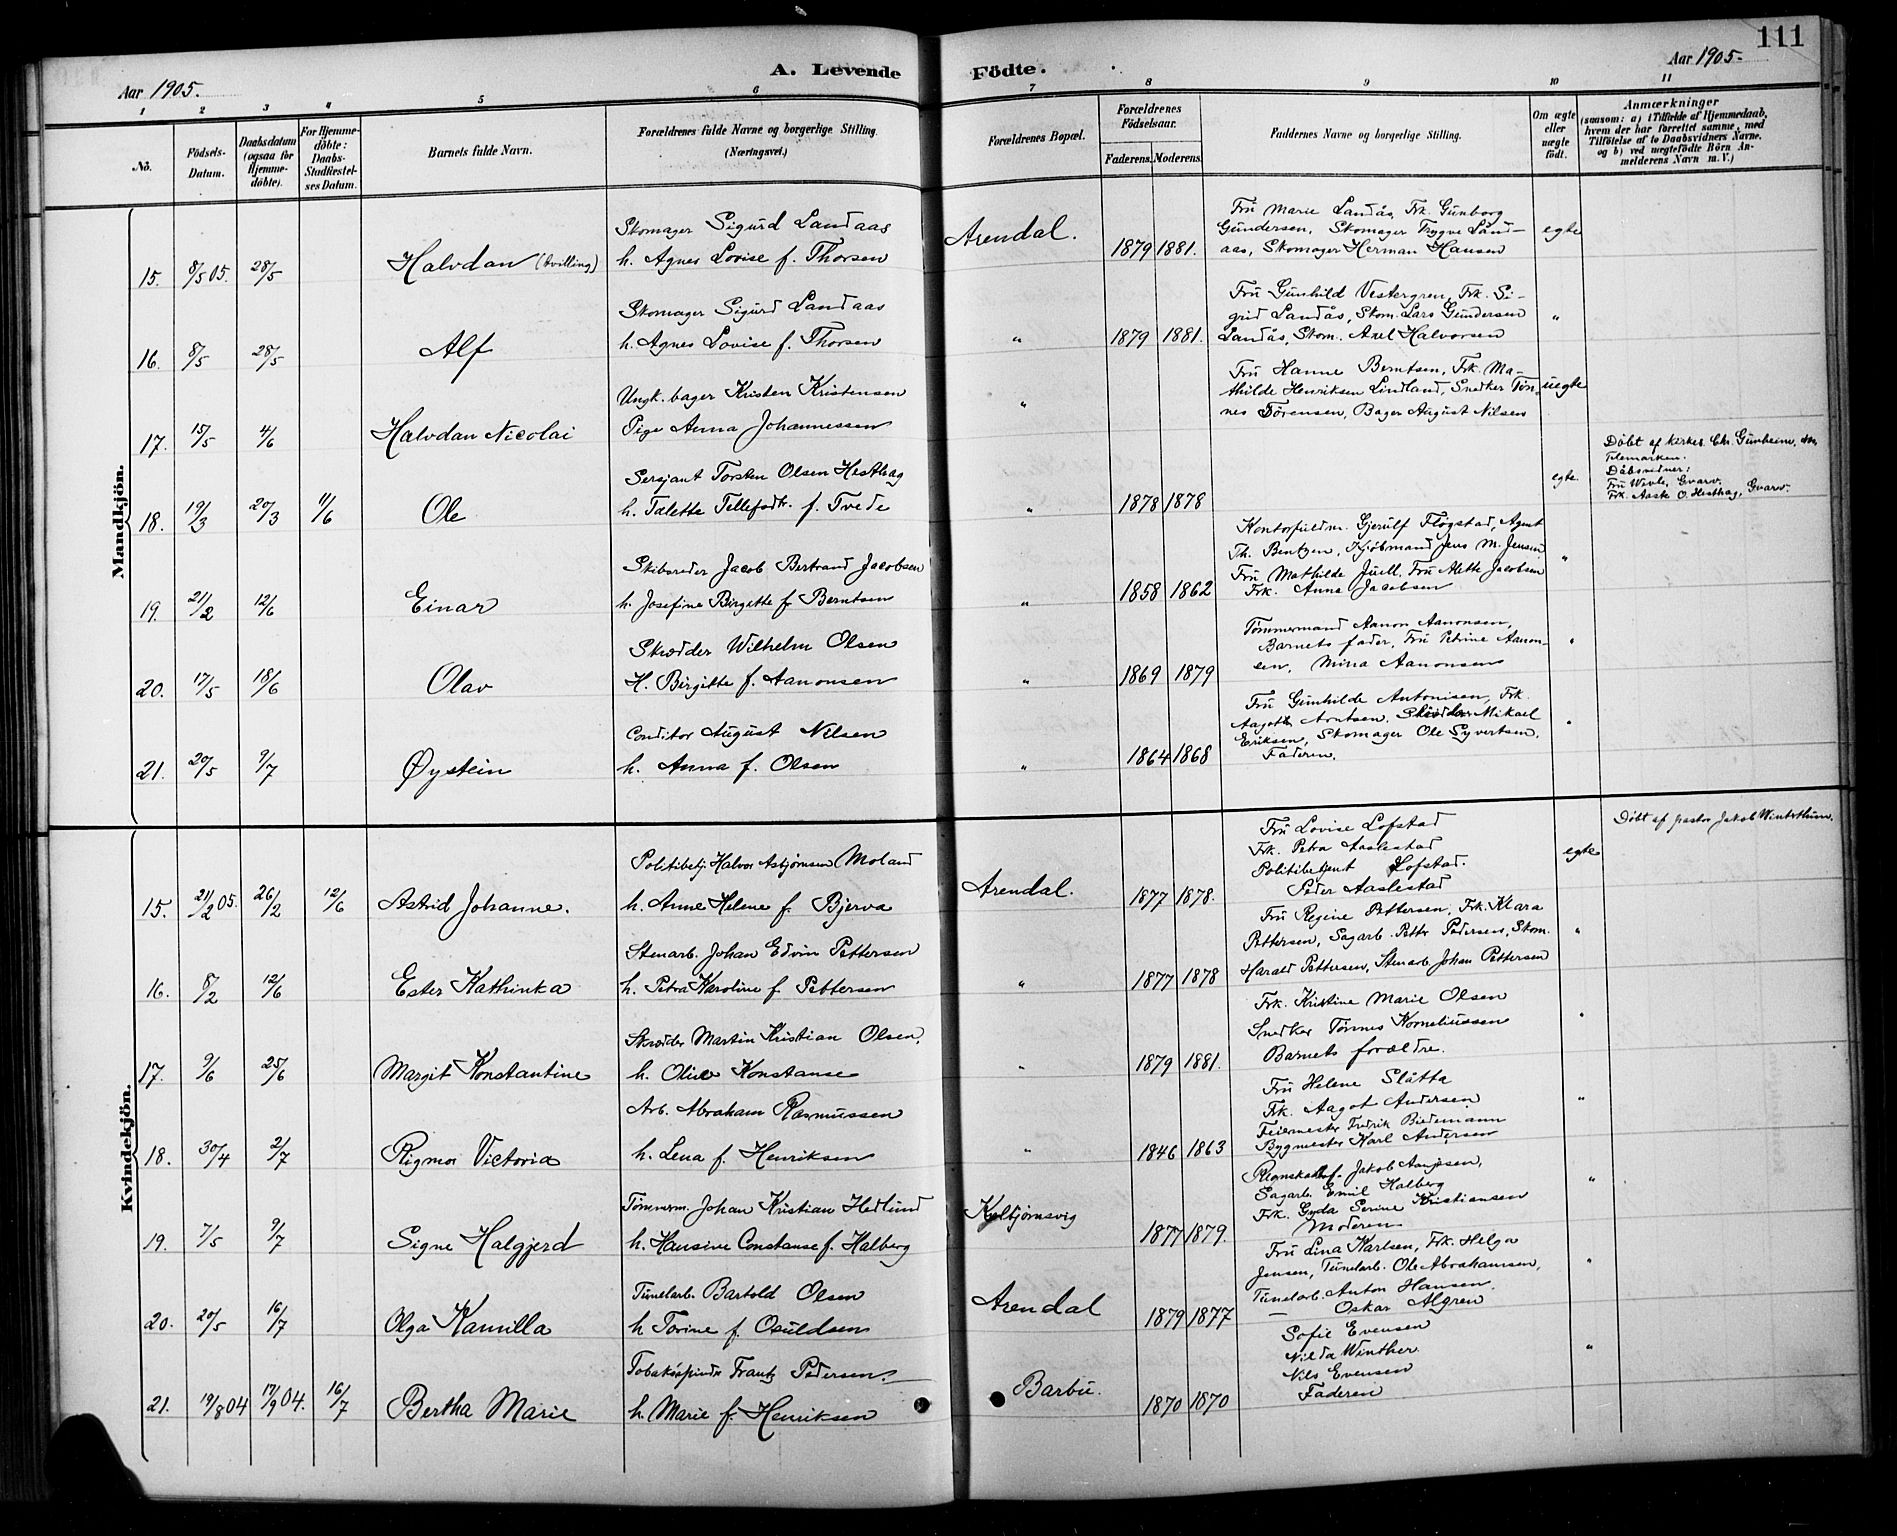 111
Aar 1905.
A. Levende
Födte.
Aar 1905.
1 2 3 4 5 6 7 8 9 10 11
No.
Födsels-
Datum.
Daabsdatum
(ogsaa for
Hjemme-
döbte).
For Hjemme-
döbte:
Daabs-
Stadfæstel-
ses Datum.
Barnets fulde Navn.
Forældrenes fulde Navne og borgerlige Stilling.
(Næringsvei.)
Forældrenes Bopæl.
Forældrenes
Födselsaar.
Faderens. Moderens.
Faddernes Navne og borgerlige Stilling.
Om ægte
eller
uægte
født.
Anmærkninger
(saasom: a) i Tilfælde af Hjemmedaab,
hvem der har forrettet samme, med
Tilföielse af to Daabsvidners Navne,
og b) ved uægtefödte Börn An-
melderens Navn m. V.)
Mandkjön.
Skomager Sigurd Landaas
15. 8/5 05. 28/5 Halvdan (tvilling) h. Agnes Lovise f. Thorsen
Arendal. 1879 1881.
Fru Marie Landås, Frk. Gunborg
Gundersen, Skomager Trygve Land-
aas, Skomager Herman Hansen
egte
Skomager Sigurd Landaas
16. 8/5 28/5 Alf h. Agnes Lovise f. Thorsen
" 1879 1881.
Fru Gunhild Vestergren, Frk. Si-
grid Landås, Skom. Lars Gundersen
Landås, Skom. Axel Halvorsen
"
Ungk. bager Kristen Kristensen
17. 15/5 4/6 Halvdan Nicolai Pige Anna Johannessen
"
Fru Hanne Berntsen, Frk. Ma-
thilde Henriksen Lindland, Snedker Tøn-
nes Sørensen, Bager August Nilsen
uegte
Sersjant Torsten Olsen Hesthag
18. 19/3 20/3 11/6 Ole h. Talette Tellefsdtr. f. Tvede
" 1878 1878
egte
Døbt af kirkes. Chr. Gunheim,
Telemarken.
Dåbsvidner:
Fru Wivle, Gvarv.
Frk. Aaste O. Hesthag, Gvarv.
Skibsreder Jacob Bertrand Jacobsen
19. 21/2 12/6 Einar h. Josefine Birgitte f. Berntsen
" 1858 1862
Kontorfuldm. Gjerulf Fløgstad, Agent
Th. Bentzen, Kjøbmand Jens M. Jensen
Fru Mathilde Juell, Fru Alette Jacobsen
Frk. Anna Jacobsen
"
Skrædder Wilhelm Olsen
20. 17/5 18/6 Olav H. Birgitte f. Aanonsen
" 1869 1879
Tømmermand Aanon Aanonsen,
Barnets fader, Fru Petrine Aanon-
sen, Mina Aanonsen
"
Conditor August Nilsen
21. 20/5 9/7 Øystein h. Anna f. Olsen
" 1864 1868
Fru Gunhilde Antonisen, Frk.
Aagoth Arntsen, Skrædder Mikael
Eriksen, Skomager Ole Syvertsen,
Faderen.
"
Kvindekjön.
Politibetj. Halvor Asbjørnsen Moland
15. 21/2 05. 26/2 12/6 Astrid Johanne. h. Anne Helene f. Bjerva
Arendal. 1877 1878.
Fru Lovise Lofstad
Frk. Petra Aaslestad
Politibetjent Lofstad.
Peder Aaslestad
egte
Døbt af pastor Jakob Winterthun.
Stenarb. Johan Edvin Pettersen
16. 8/2 12/6 Ester Kathinka h. Petra Karoline f. Pettersen
" 1877 1878
Fru Regine Pettersen, Frk. Klara
Pettersen, Sagarb. Petter Pedersen, Skom.
Harald Pettersen, Stenarb. Johan Pettersen
"
Skrædder Martin Kristian Olsen,
17. 9/6 25/6 Margit Konstantine h. Olive Konstanse
" 1879 1881.
Frk. Kristine Marie Olsen
Snedker Tønnes Korneliussen
Barnets forældre.
"
Arb. Abraham Rasmussen
18. 30/4 2/7 Rigmor Victoria h. Lena f. Henriksen
" 1846 1863
Fru Helene Slåtta
Frk. Aagot Andersen
Feiermester Fredrik Biedemann
Bygmester Karl Andersen
"
Tømmerm. Johan Kristian Hedlund
19. 7/5 9/7 Signe Halgjerd h. Hansine Constanse f. Halberg
Kolbjørnsvig 1877 1879.
Regnskabsf. Jakob
Sagarb. Emil Halberg
Frk. Gyda Serine Kristiansen
Moderen
"
Tunelarb. Bartold Olsen
20. 20/5 16/7 Olga Kamilla h Torine f. Osuldsen
Arendal 1879 1877
Fru Lina Karlsen, Frk. Helga
Jensen, Tunelarb. Ole Abrahamsen,
Tunelarb. Anton Hansen.
— Oskar Algren
"
Tobakspinder Frantz Pedersen.
21. 19/8 04 17/9 04. 16/7 Bertha Marie h. Marie f. Henriksen
Barbu. 1870 1870
Sofie Evensen
Nilda Winther.
Nils Evensen
Faderen
"